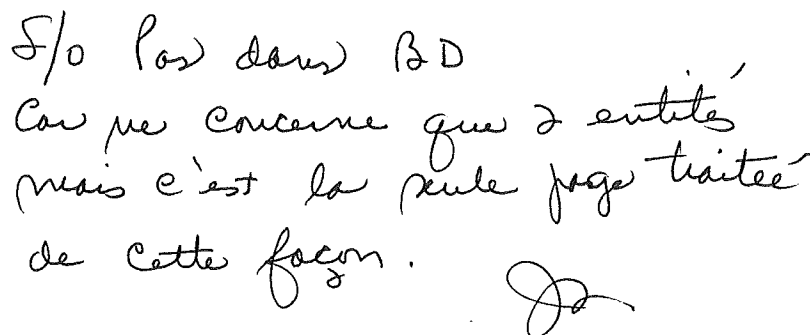 S/O Pas dans BD
Car ne concerne que 2 entités
mais c'est la seule page traitée
de cette façon.